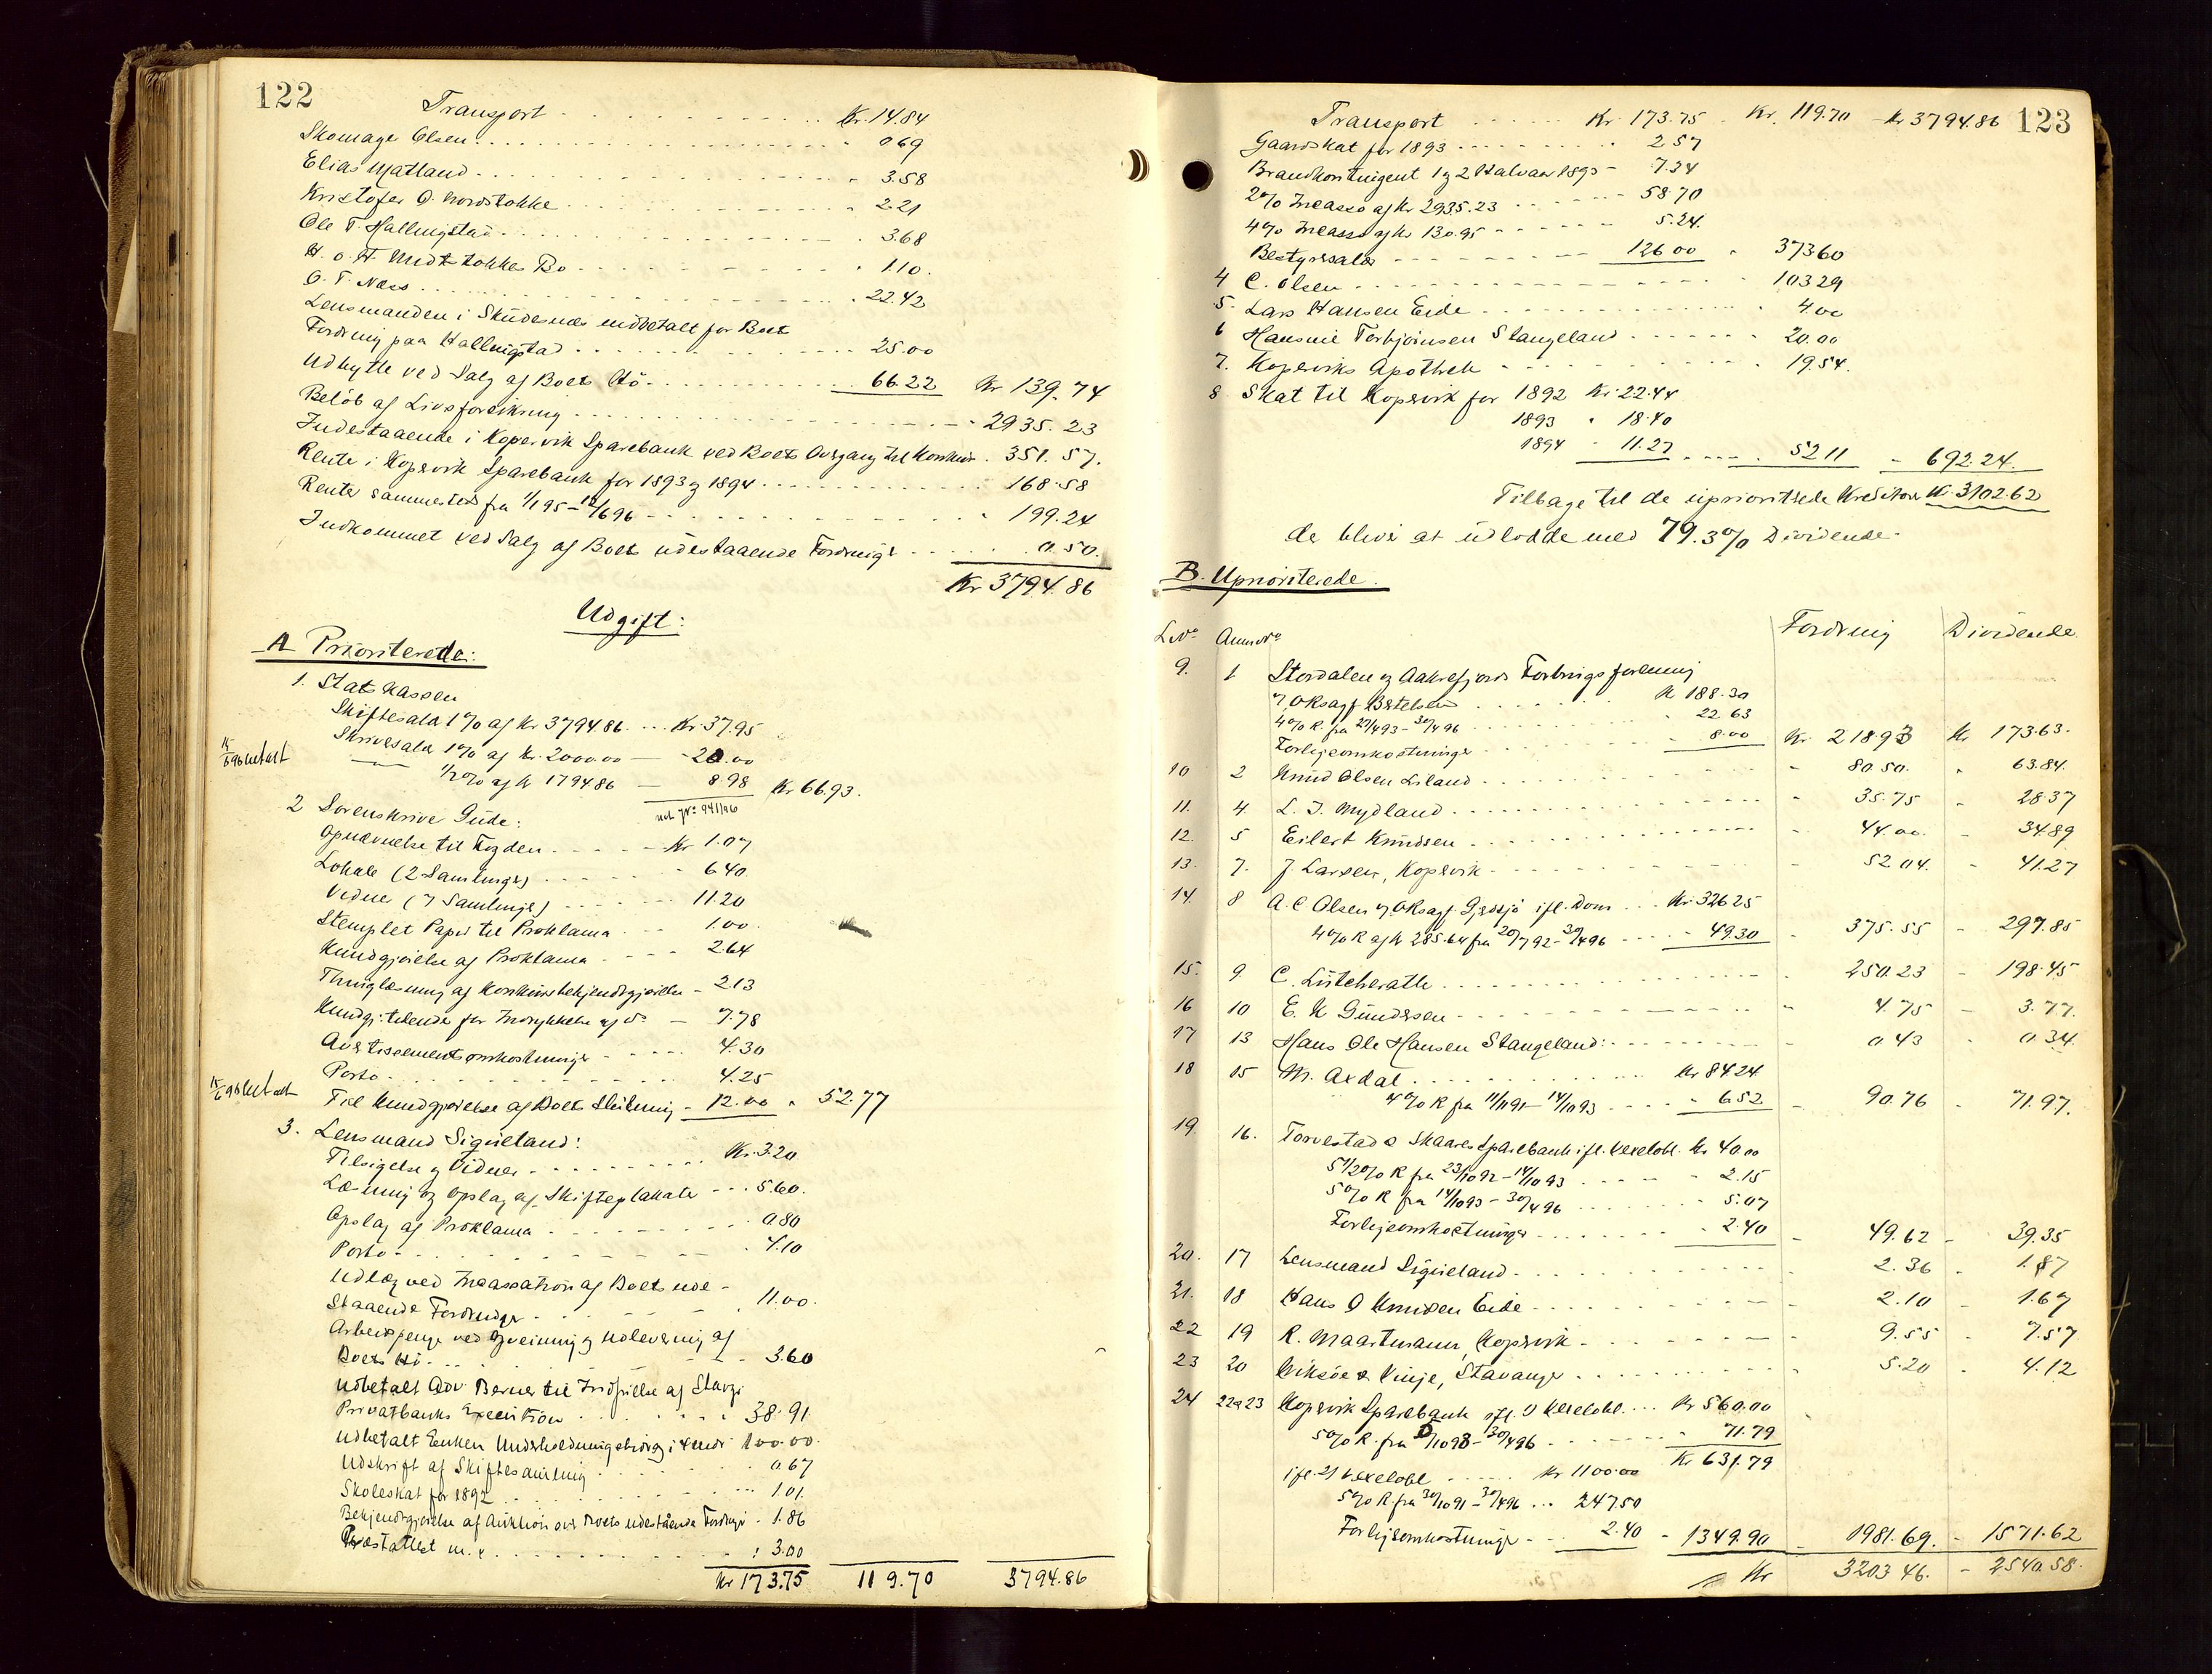 122
Transport . . . Kr. 14.84
Skomage Olsen . . . 0.69
Elias Matland . . . 3.58
Kristofer O. Nordstokke . . . 2.21
Ole T. Hallingstad . . . 3.68
H. o. H. Midtstokkes Bo . . . 1.10
O. T. Næss . . . 22.42
Lensmanden i Skudesnæs indbetalt for Boets
Fordring paa Hallingstad . . . 25.00
Udbytte ved Salg af Boets Hö . . . 66.22 Kr 139.74
Belöb af Livsforsikring . . . 2935.23
Indestaaende i Kopervik Sparebank ved Boets Overgang til Konkurs . 351.57.
Rente i Kopervik Sparebank for 1893 og 1894 . . . 168.58
Renter sammesteds fra 1/1 95 – 12/6 96 . . . 199.24
Indkommet ved Salg af Boets udestaaende Fordringer . . . 0.50.
Kr 3794.86
Udgift:
A Prioriterede:
1. Statskassen
Skiftesalær 1% af Kr 3794.86 . . . Kr. 37.95
Skriversalær 1% af Kr. 2000.00 – 20.00
15/6 96 betalt
1/2% af Kr 1794.86 – 8.98 Kr 66.93.
2 Sorenskriver Gude:
Opnævnelse til Fogden . . . Kr 1.07
Lokale (2 Samlinger) . . . 6.40
Vidner (7 Samlinger) . . . 11.20
Stemplet Papir til Proklama . . . 1.00
Kundgjørelse af Proklama . . . 2.64
Thinglæsning af Konkursbekjendtgjørelse – 2.13
Kundgj.tidende for Indrykkelse af do – 7.78
Avertissementsomkostninger . . . 4.30
Porto . . . 4.25
15/6 96 betalt Til Kundgjørelse af Boets Slutning – 12.00 " 52.77
3. Lensmand Sigueland:
Tilsigelse og Vidner . . . Kr. 3.20
Læsning og Opslag af Skifteplakater . . . 5.60.
Opslag af Proklama . . . 0.80
Porto . . . 4.10
Udlæg ved Incassation af Boets ude-
staaende Fordringer . . . 11.00.
Arbeidspenge ved Opveining og Udlevering af
Boets Hö . . . 3.60
Udbetalt Adv. Berner til Indfrielse af Stavgr
Privatbanks Execution . . . 38.91
Udbetalt Enken Underholdningsbidrag i 4 Mndr 100.00.
Udskrift af Skiftesamling . . . 0.67
Skoleskat for 1892 . . . 1.01
Bekjendtgjørelse af Auktion over Boets udestående Fordringer . 1.86
Præstattest m. v. . . . : 3.00
Kr 173.75 119.70 3794.86
123
Transport . . . Kr. 173.75 . Kr. 119.70 – Kr 3794.86
Gaardskat for 1893 . . . 2.57
Brandkontingent 1 og 2 Halvaar 1893 – 7.34
2% Incasso af Kr 2935.23 . . . 58.70
4% Incasso af Kr 130.95 . . . 5.24.
Bestyrersalær . . . 126.00 " 373.60
4 C. Olsen . . . 103.29
5. Lars Hansen Eide . . . 4.00
6 Hansine Torbjörnsen Stangeland . . . 20.00
7. Koperviks Apothek . . . 19.54.
8 Skat til Kopervik for 1892 Kr. 22.44
1893 " 18.40
1894 – 11.27 . . . 52.11 – 692.24.
Tilbage til de uprioriterede Kreditorer Kr. 3102.62
der bliver at udlodde med 79.3% Dividende.
B. Uprioriterede.
L.No Anm.No Fordring Dividende
9. 1 Stordalen og Aakrefjords Forbrugsforening
v/ OKsagf. Bertelsen . . . Kr 188.30
4% R fra 27/4 93 – 30/4 96 . . . 22.63
Forligsomkostninger . . . 8.00 Kr. 218.93 Kr 173.63.
10 2 Knud Olsen Liland . . . 80.50. " 63.84.
11. 4. L. J. Mydland . . . 35.75 – 28.37
12. 5 Eilert Knudsen . . . 44.00. – 34.89
13. 7. J. Larsen, Kopervik . . . 52.04. – 41.27
14. 8 A. C. Olsen v/ OKsagf. Gjessjø ifl. Dom . . . Kr. 326.25
4% R af Kr 285.64 fra 20/7 92 – 30/4 96 . . . 49.30 – 375.55 – 297.85
15. 9. C. Lütcherath . . . 250.23 – 198.45
16 10 E. K Gundersen . . . 4.75 – 3.77.
17 13 Hans Ole Hansen Stangeland: . . . 0.43 – 0.34.
18 15 M. Axdal . . . Kr 84.24
4% R fra 11/11 91 – 14/10 93 . . . 6.52 – 90.76 – 71.97.
19. 16. Torvestad & Skaares Sparebank ifl. Vexelobl. Kr 40.00
5 1/2% R fra 23/10 92 – 14/10 93 . . . 2.15
5% R fra 14/10 93 – 30/4 96 . . . 5.07
Forligsomkostninger . . . 2.40 – 49.62 – 39.35
20. 17 Lensmand Sigueland . . . 2.36 – 1.87
21. 18 Hans O Knudsen Eide . . . 2.10 – 1.67
22 19 R. Maartmann, Kopervik . . . 9.55 – 7.57
23 20 Eriksøe & Vinje, Stavanger . . . 5.20 – 4.12
24 22 & 23 Kopervik Sparebank ifl. Vexelobl. . . . Kr 560.00
5% R. fra /10 93 – 30/4 96 . . . 71.79
Kr 631.79
ifl. 21 Vexelobl . . . Kr 1100.00
5% R fra 30/10 91 – 30/4 96 . . . 247.50
Forligsomkostninger . . . 2.40 – 1349.90 – 1981.69. – 1571.62
Kr 3203.46. – 2540.58.